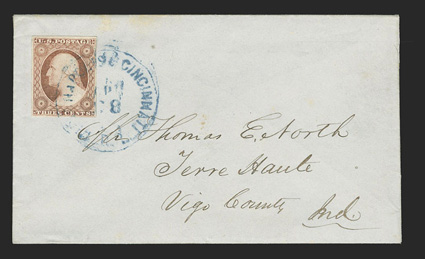 U.S. POSTAGE
THREE CENTS
CINCINNATI
8
Thomas E. North
Terre Haute
Vigo County Ind.